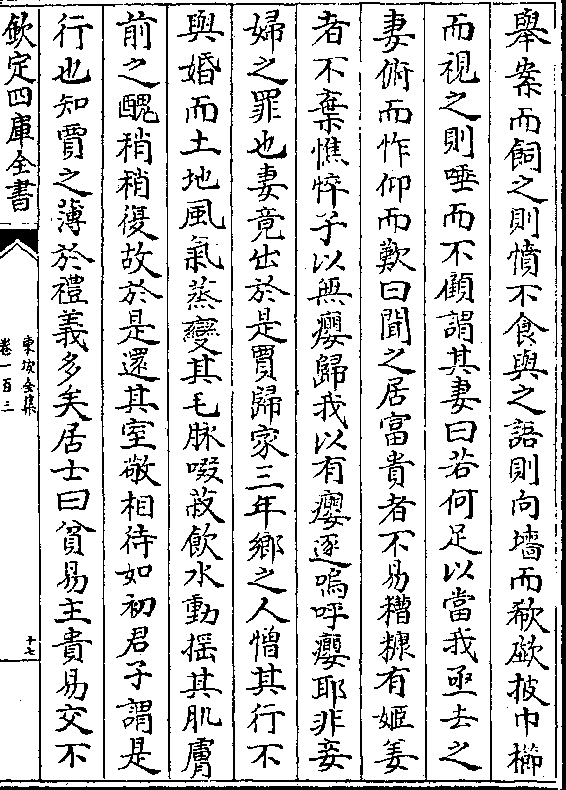 舉案而飼之則憤不食與之語則向墻而欷歔披巾櫛
而視之則唾而不顧謂其妻曰若何足以當我亟去之
妻俯而怍仰而歎曰聞之居富貴者不易糟糠有姬姜
者不棄憔悴子以無癭歸我以有癭逐嗚呼癭耶非妾
婦之罪也妻竟出於是賈歸家三年鄉之人憎其行不
與婚而土地風氣蒸變其毛脉啜菽飲水動摇其肌膚
前之醜稍稍復故於是還其室敬相待如初君子謂是
行也知賈之薄於禮義多矣居士曰貧易主貴易交不
欽定四庫全書
東坡全集
卷一百三
十七